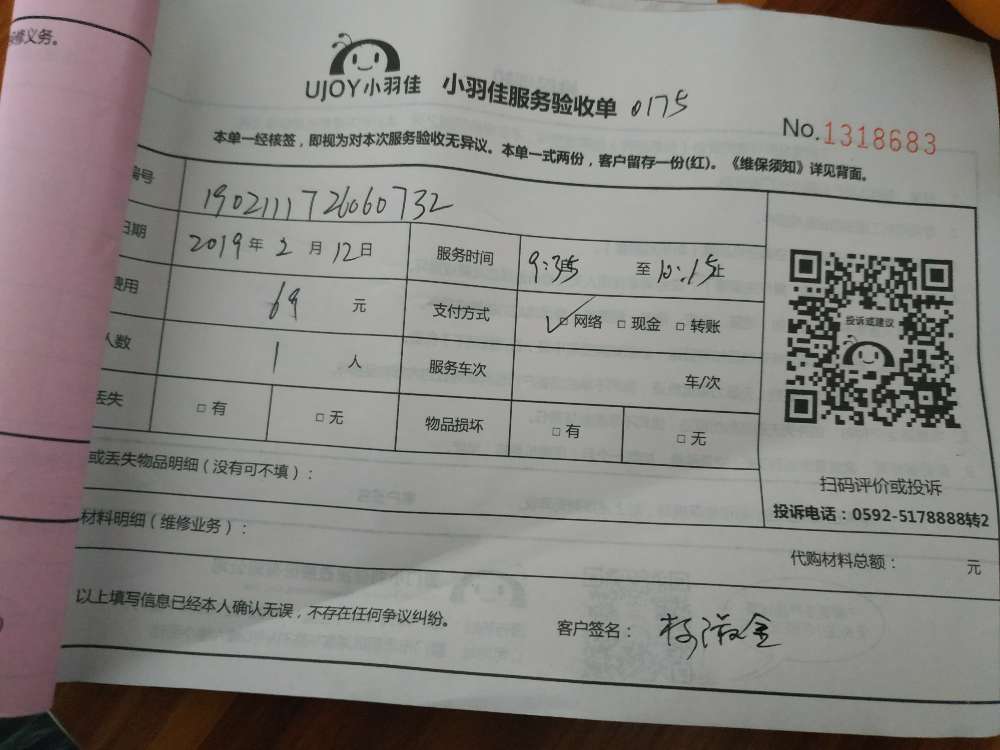 修义务。
UJOY小羽佳 小羽佳服务验收单 0175
No.1318683
本单一经核签，即视为对本次服务验收无异议。本单一式两份，客户留存一份(红)。《维保须知》详见背面。
编号 1902111726060732
日期 2019年2月12日 服务时间 9:35至10:15止
费用 69元 支付方式 ✓□网络 □现金 □转账
投诉或建议
人数 1人 服务车次 车/次
丢失 □有 □无 物品损坏 □有 □无
或丢失物品明细（没有可不填）：
扫码评价或投诉
投诉电话：0592-5178888转2
材料明细（维修业务）：
代购材料总额： 元
以上填写信息已经本人确认无误，不存在任何争议纠纷。
客户签名：